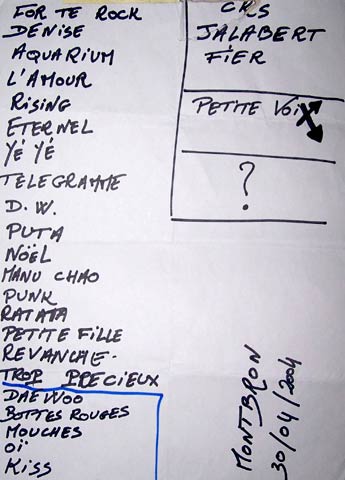 FOR TE ROCK
DENISE
AQUARIUM
L'AMOUR
RISING
ETERNEL
YÉ YÉ
TELEGRAMME
D.W.
PUTA
NOËL
MANU CHAO
PUNK
RATATA
PETITE FILLE
REVANCHE.
TROP PRECIEUX
DAEWOO
BOTTES ROUGES
MOUCHES
OÏ
KISS
CRS
JALABERT
FIER
PETITE VOIX
?
MONTBRON
30/04/2004